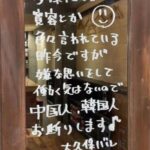 寛容とか
色々言われている
昨今ですが
嫌な思いをして
働く気はないので
中国人、韓国人
お断りします♪
大久保バル